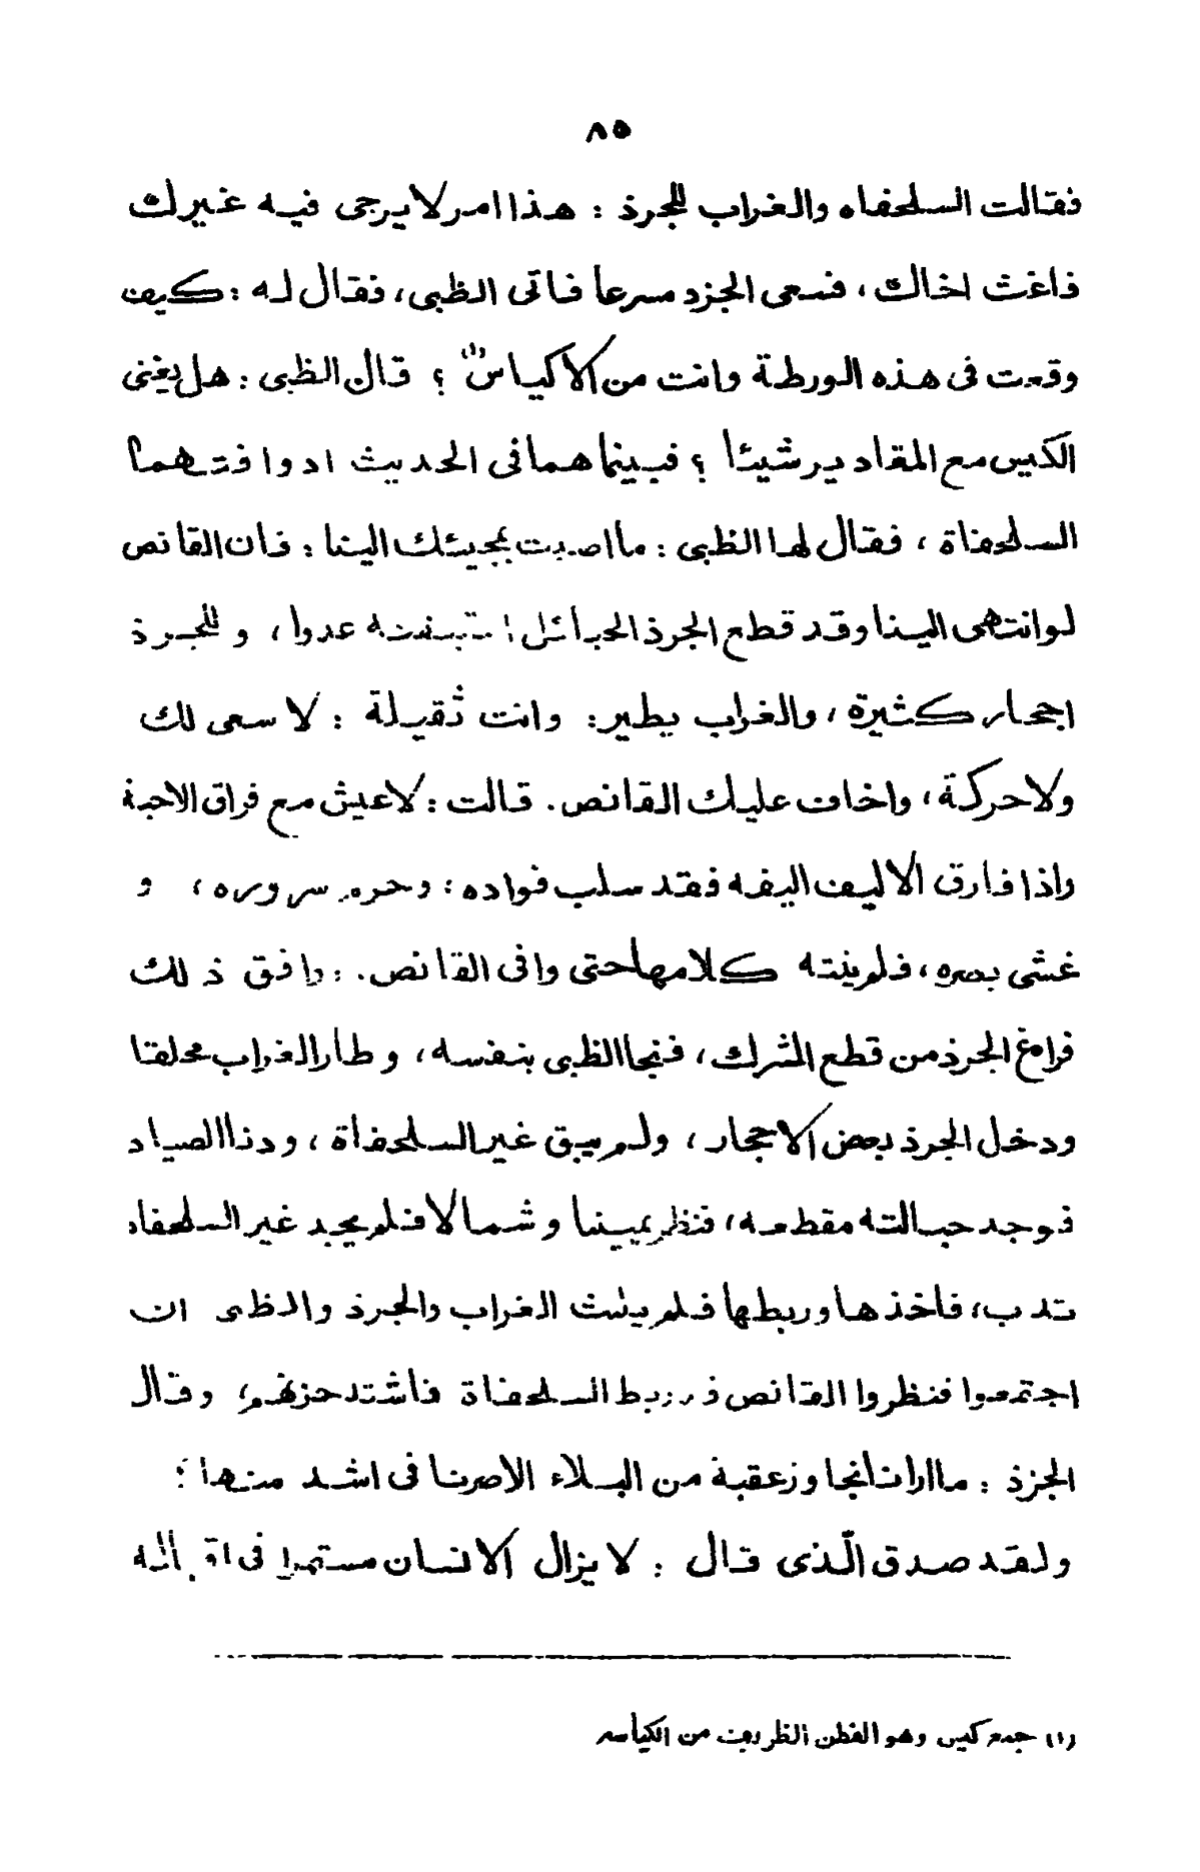 ٨٥
فقالت السلحفاه والغراب للجرذ : هذا امر لا يرجى فيه غيرك
فاغث اخاك ، فسعى الجزد مسرعا فاتى الظبى، فقال له : كيف
وقعت فى هذه الورطة وانت من الاكياس (١) ؟ قال الظبى : هل يغنى
الكيس مع المقادير شيئا ؟ فبينما هما فى الحديث اذ وافتهما
السلحفاة ، فقال لها الظبى : ما اصبت بمجيئك الينا : فان القانص
لو انتهى الينا وقد قطع الجرذ الحبائل استبقته عدوا ، وللجرذ
اجحار كثيرة ، والغراب يطير : وانت ثقيلة : لا سعى لك
ولا حركة ، واخاف عليك القانص . قالت : لا عيش مع فراق الاحبة
واذا فارق الاليف اليفه فقد سلب فواده : وحرم سروره ، و
غشى بصره ، فلم ينته كلامها حتى وافى القانص . : وافق ذلك
فراغ الجرذ من قطع الشرك ، فنجا الظبى بنفسه ، وطار الغراب محلقا
ودخل الجرذ بعض الاحجار ، ولم يبق غير السلحفاة ، ودنا الصياد
فوجد حبالته مقطعه ، فنظر يمينا وشمالا فلم يجد غير السلحفاه
تدب ، فاخذها وربطها فلم يلبث الغراب والجرذ والظبى ان
اجتمعوا فنظروا القانص قد ربط السلحفاة فاشتد حزنهم ، وقال
الجزذ : ما ارانا نجاوز عقبة من البلاء الا صرنا فى اشد منها ؛
ولقد صدق الّذى قال : لا يزال الانسان مستمرا فى اقباله
(١) جمع كيس وهو الفطن الظريف من الكياسه